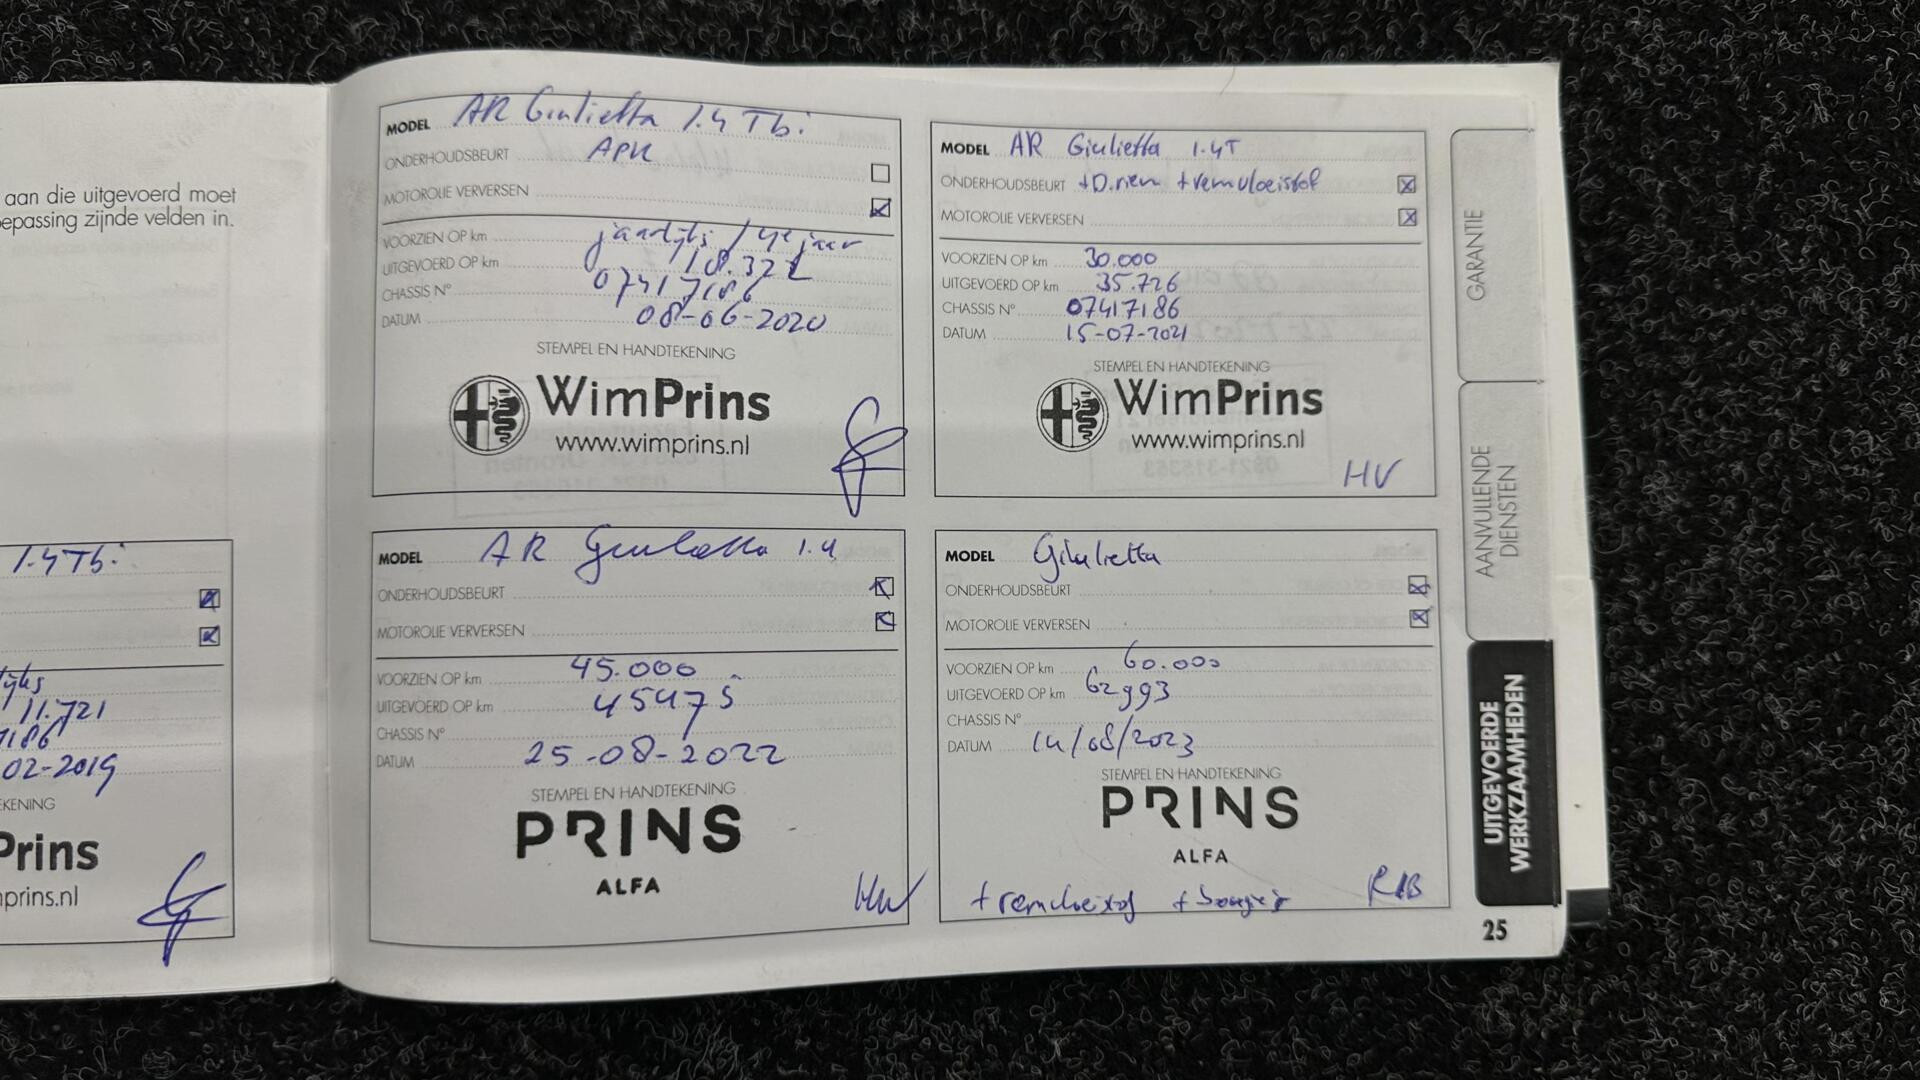 aan die uitgevoerd moet
epassing zijnde velden in.
1.4 Tb.
ijks
11.721
7186
02-2019
EKENING
Prins
nprins.nl
MODEL AR Giulietta 1.4 Tb.
ONDERHOUDSBEURT APK
MOTOROLIE VERVERSEN
VOORZIEN OP km jaarlijks / 4e jaar
UITGEVOERD OP km 18.322
CHASSIS N° 07417186
DATUM 08-06-2020
STEMPEL EN HANDTEKENING
WimPrins
www.wimprins.nl
MODEL AR Giulietta 1.4T
ONDERHOUDSBEURT +D.riem +remvloeistof
MOTOROLIE VERVERSEN
VOORZIEN OP km 30.000
UITGEVOERD OP km 35.726
CHASSIS N° 07417186
DATUM 15-07-2021
STEMPEL EN HANDTEKENING
WimPrins
www.wimprins.nl
HV
MODEL AR Giulietta 1.4
ONDERHOUDSBEURT
MOTOROLIE VERVERSEN
VOORZIEN OP km 45.000
UITGEVOERD OP km 45475
CHASSIS N°
DATUM 25-08-2022
STEMPEL EN HANDTEKENING
PRINS
ALFA
MODEL Giulietta
ONDERHOUDSBEURT
MOTOROLIE VERVERSEN
VOORZIEN OP km 60.000
UITGEVOERD OP km 62993
CHASSIS N°
DATUM 14/08/2023
STEMPEL EN HANDTEKENING
PRINS
ALFA
+ remvloeistof + bougies
GARANTIE
AANVULLENDE
DIENSTEN
UITGEVOERDE
WERKZAAMHEDEN
25